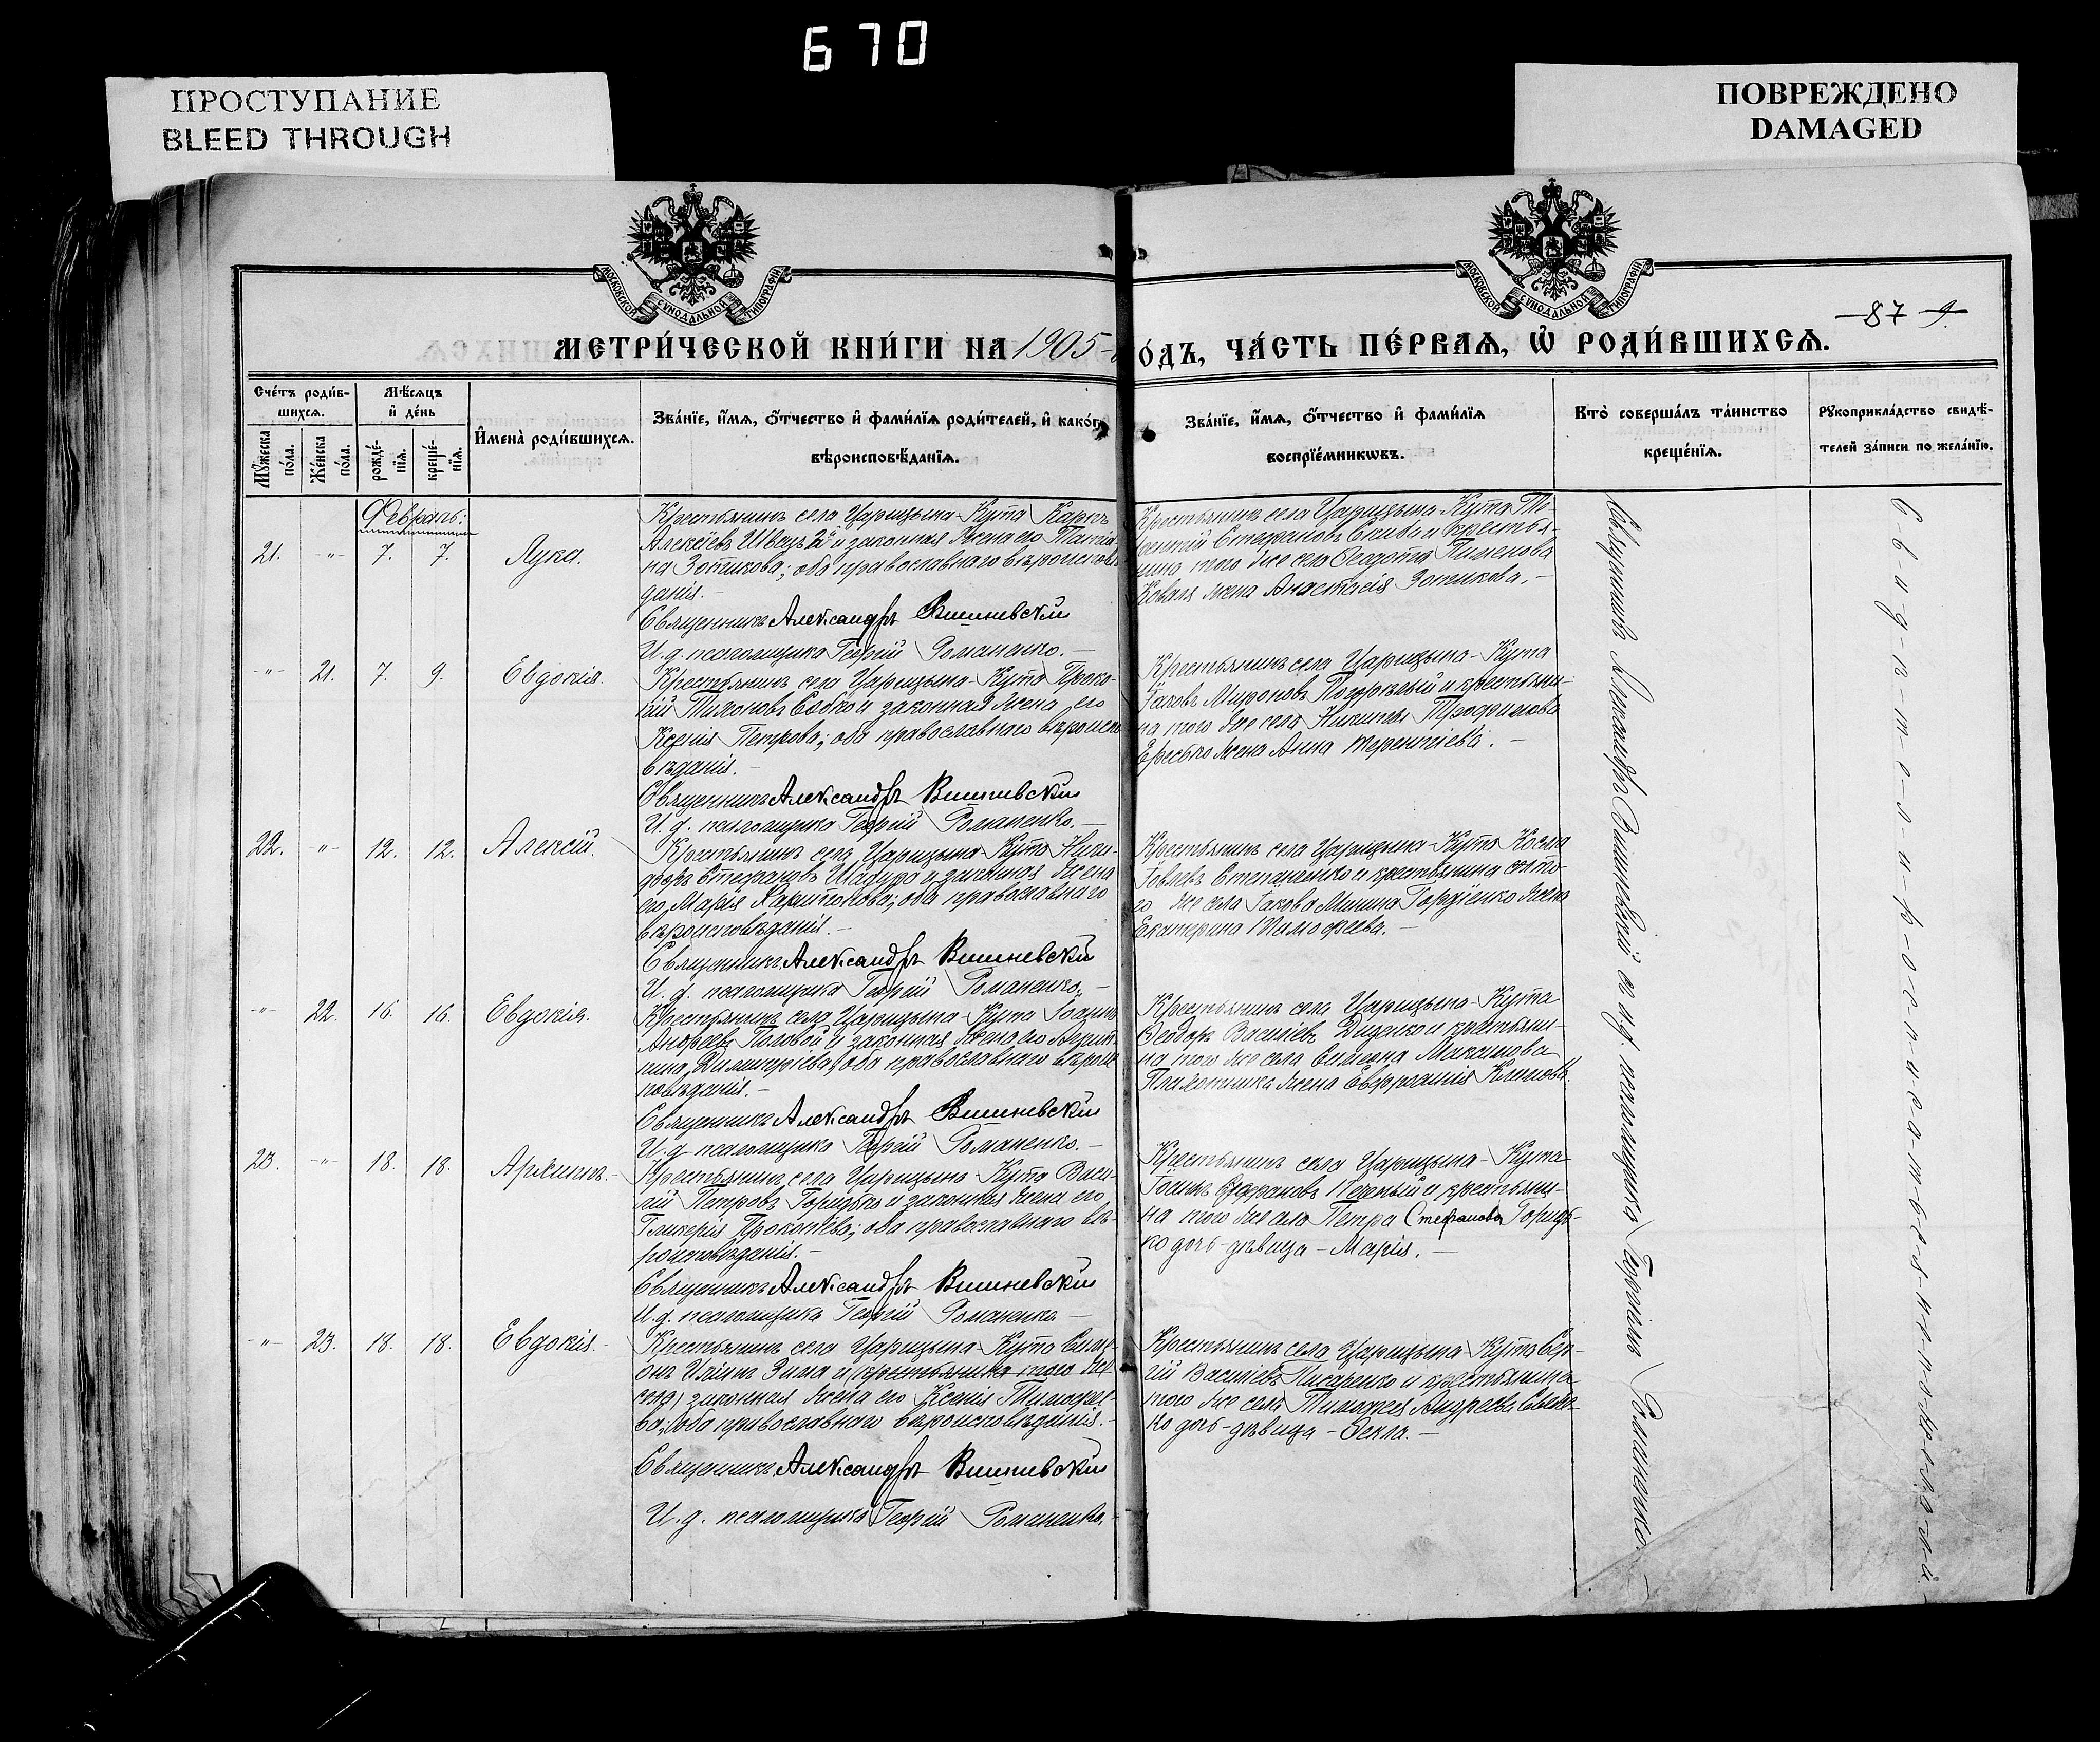 670
ПРОСТУПАНИЕ
BLEED THROUGH
ПОВРЕЖДЕНО
DAMAGED
МОСКОВСКОЙ СУНОДАЛЬНОЙ ТИПОГРАФІИ
МОСКОВСКОЙ СУНОДАЛЬНОЙ ТИПОГРАФІИ
87
МЕТРИ́ЧЕСКОЙ КНИ́ГИ НА 1905
О́ДЪ, ЧА́СТЬ ПЕ́РВАѦ, Ѡ҆ РОДИ́ВШИХСѦ.
Сче́тъ роди́вшихсѧ.
Мꙋ́жеска по́ла.
Же́нска по́ла.
Мѣ́сѧцъ и҆ де́нь
рожде́нїѧ.
креще́нїѧ.
И҆мена̀ роди́вшихсѧ.
Зва́нїе, и҆́мѧ, ѻ҆́тчество и҆ фами́лїѧ роди́телей, и҆ како́г
вѣроисповѣ́данїѧ.
Зва́нїе, и҆́мѧ, ѻ҆́тчество и҆ фами́лїѧ
воспрїе́мникѡвъ.
Кто̀ соверша́лъ та́инство
креще́нїѧ.
Рꙋкоприкла́дство свидѣ́-
телей за́писи по жела́нїю.
Февраль:
21. -"- 7. 7. Лука.
Крестьянинъ села Царицына-Кута Карпъ
Алексіевъ Швецъ 2й и законная жена его Татіа-
на Зотикова; оба православнаго вѣроиспов
данія.-
Священникъ Александръ Вишневскій
И. д. псаломщика Георгій Романенко.-
Крестьянинъ села Царицына-Кута
Стефановъ Скиба и крестья-
нина того же села Ѳедота Пименова
Коваля жена Анастасія Зотикова.-
-"- 21. 7. 9. Евдокія.
Крестьянинъ села Царицына-Кута Проко-
пій Тихоновъ Бабко и законная жена его
Ксенія Петрова; оба православнаго вѣроиспо
вѣданія.-
Священникъ Александръ Вишневскій
И. д. псаломщика Георгій Романенко.-
Крестьянинъ села Царицына-Кута
Іаковъ Мироновъ и крестьяни-
на того же села Никиты Трофимова
Ересько жена Анна Терентіева.-
22. -"- 12. 12. Алексій.
Крестьянинъ села Царицына-Кута Ники-
форъ Стефановъ и законная жена
его Марія Харитонова; оба православнаго
вѣроисповѣданія.-
Священникъ Александръ Вишневскій
И. д. псаломщика Георгій Романенко.-
Крестьянинъ села Царицына-Кута Косма
Іовлевъ Степаненко и крестьянина того
го же села Іакова Минина Гордіенко жена
Екатерина Тимофеева.-
-"- 22. 16. 16. Евдокія.
Крестьянинъ села Царицына-Кута Іоаннъ
Андреевъ Половой и законная жена его
Димитріева; оба православнаго вѣроис
повѣданія.-
Священникъ Александръ Вишневскій
И. д. псаломщика Георгій Романенко.-
Крестьянинъ села Царицына-Кута
Ѳеодоръ Василіевъ Диденко и крестьяни-
на того же села Симеона Максимова
Плахотника жена Евфросинія Климова.
23. -"- 18. 18. Архиппъ.-
Крестьянинъ села Царицына-Кута Васи-
лій Петровъ Горидько и законная жена его
Гликерія Прокопіева; оба православнаго вѣ-
роисповѣданія.-
Священникъ Александръ Вишневскій
И. д. псаломщика Георгій Романенко-
Крестьянинъ села Царицына-Кута
Іоаннъ и крестьяни-
на того же села Петра Стефанова Горидь-
ко дочь-дѣвица-Марія.-
-"- 23. 18. 18. Евдокія.-
Крестьянинъ села Царицына-Кута Симе-
онъ Зима и (крестьянка того же
села) законная жена его Ксенія Тимофее-
ва; оба православнаго вѣроисповѣданія.-
Священникъ Александръ Вишневскій
И. д. псаломщика Георгій Романенко.
Крестьянинъ села Царицына-Кута Сер-
гій Василіевъ Писаренко и крестьянина
того же села Тимофея Андреева
ко дочь-дѣвица-Ѳекла.-
Священникъ Александръ Вишневскій съ и.д. псаломщика Георгіемъ Романенко.-